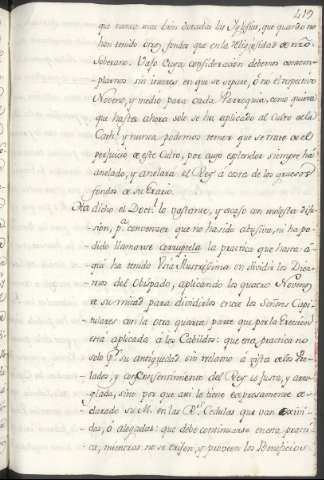 415
que nunca mas bien dotadas las Iglesias, que quando no
han tenido otros fondos que en la Religiosidad de nrõ
Soberano. Vajo cuya consideracion debemos contem-
plarnos sin interes en que se separe, ó no el respectivo
Noveno, y medio para cada Parroquia, como quiera
que hasta ahora solo se ha aplicado al Culto de la
Cath.l y nunca podemos temer que se trate de el
perjuicio de este Culto, por cuyo esplendor siempre há
anelado, y anelara el Rey á costa de los gruesos
fondos de su Erario.
dicho el Doct.l lo bastante, y acaso con molesta difu-
sion, p.a convencer que no ha sido abusiva, ni ha po-
dido llamarse corruptela la practica que hasta a-
quí ha tenido Vrã Illustrissima en dividir los Diez-
mos del Obispado, aplicando los quatro Novenos
de su mitad para dividirlos entre los Señores Capi-
tulares con la otra quarta parte que por la Ereccion
está aplicada á los Cabildos: que esta practica no
solo p.r su antiguedad sin reclamo á vista de los Pre-
lados, y con consentimiento del Rey es justa, y arre-
glada, sino por que asi lo tiene expresamente de-
clarado su M. en las R.s Cedulas que van
ó alegadas: que debe continuarse en esta practi-
ca, mientras no se erijen, y proveen los Beneficios